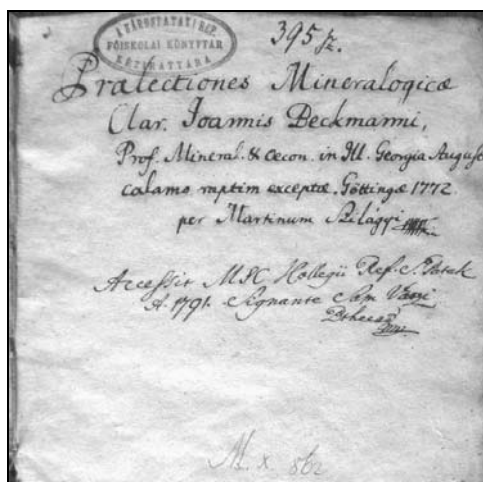 A SÁROSPATAKI REF.
FŐISKOLAI KÖNYVTÁR
KÉZIRATTÁRA
395 fz.
Prælectiones Mineralogicæ
Clar. Joannis Beckmanni,
Prof. Mineral. & œcon. in Ill. Georgia Augusta
calamo raptim exceptæ. Göttingæ 1772.
per Martinum Szilágyi
Accessit MSC Kollegii Ref. S. Patak
A. 1791. Signante Sam
M. x. 862